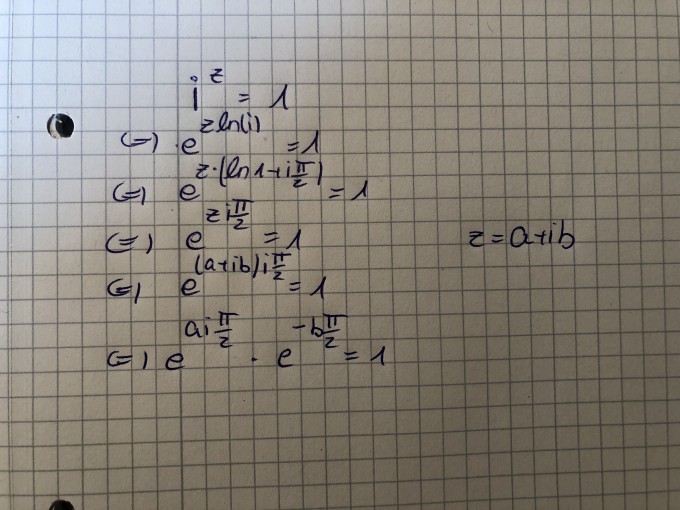 i^z = 1
(=) e^{z ln(i)} = 1
(=) e^{z·(ln 1 + i π/2)} = 1
(=) e^{z i π/2} = 1
z = a + ib
(=) e^{(a+ib) i π/2} = 1
(=) e^{a i π/2} · e^{-b π/2} = 1